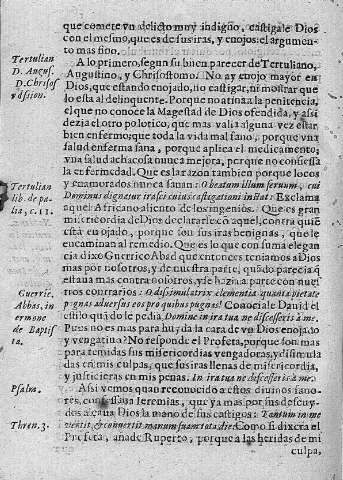 que comete vn delicto muy indigno, castigale Dios
con el mesmo, que es de sus iras, y enojos el argumen-
to mas fino.
Tertulian
D. Augus.
D. Chrisos
A lo primero, segun su buen parecer de Tertuliano,
Augustino, y Chrisostomo. No ay enojo mayor en
Dios, que estando enojado, no castigar, ni mostrar que
lo esta al delinquente. Porque no atina la penitencia,
el que no conoce la Magestad de Dios ofendida, y assi
dezia el otro politico, que mas valia alguna vez estar
bien enfermo, que toda la vida mal sano, porque vna
salud enferma sana, porque aplica el medicamento;
vna salud achacosa nunca mejora, perque no confiessa
la enfermedad. Que es la razon tambien porque locos
y enamorados nunca sanan: O beatum illum seruum, cui
Dominus dignatur irasci cuius castigationi instat: Exclama
Tertulian
lib. de pa-
tia, c. 11.
aquel Africano aliento de los ingenios. Que es gran
misericordia de Dios declararse cō aquel, contra quiē
está enojado, porque son sus iras benignas, que le
encaminan al remedio. Que es lo que con suma elegan
cia dixo Guerrico Abad que entonces teniamos a Dios
mas por nosotros, y de nuestra parte, quādo parecia q̄
estaua mas contra nosotros, y se hazia a parte con nues
tros contrarios: O dissimulatrix clementia quanta pietate
pugnas aduersus eos pro quibus pugnas! Conociale Dauid el
estilo quādo le pedia. Domine in ira tua ne discesseris à me.
Guerric.
Abbas. in
sermone
de Baptis
ta.
Pues no es mas para huyda la cara de vn Dios enojado
y vengatiua? No responde el Profeta, porque son mas
para temidas sus misericordias vengadoras, y dissimula
das en mis culpas, que sus iras llenas de misericordia,
y justicieras en mis penas. In ira tua ne discesseris à me.
Psalm.
Assi vemos quan reconocido a estos diuinos fauo-
res, confessaua Jeremias, que ya mas por sus descuy-
dos acaua Dios la mano de sus castigos: Tantum in me
vertit, & conuertit manum suam tota die. Como si dixera el
Thren. 3.
Profeta, añade Ruperto, porque a las heridas de mi
culpa,